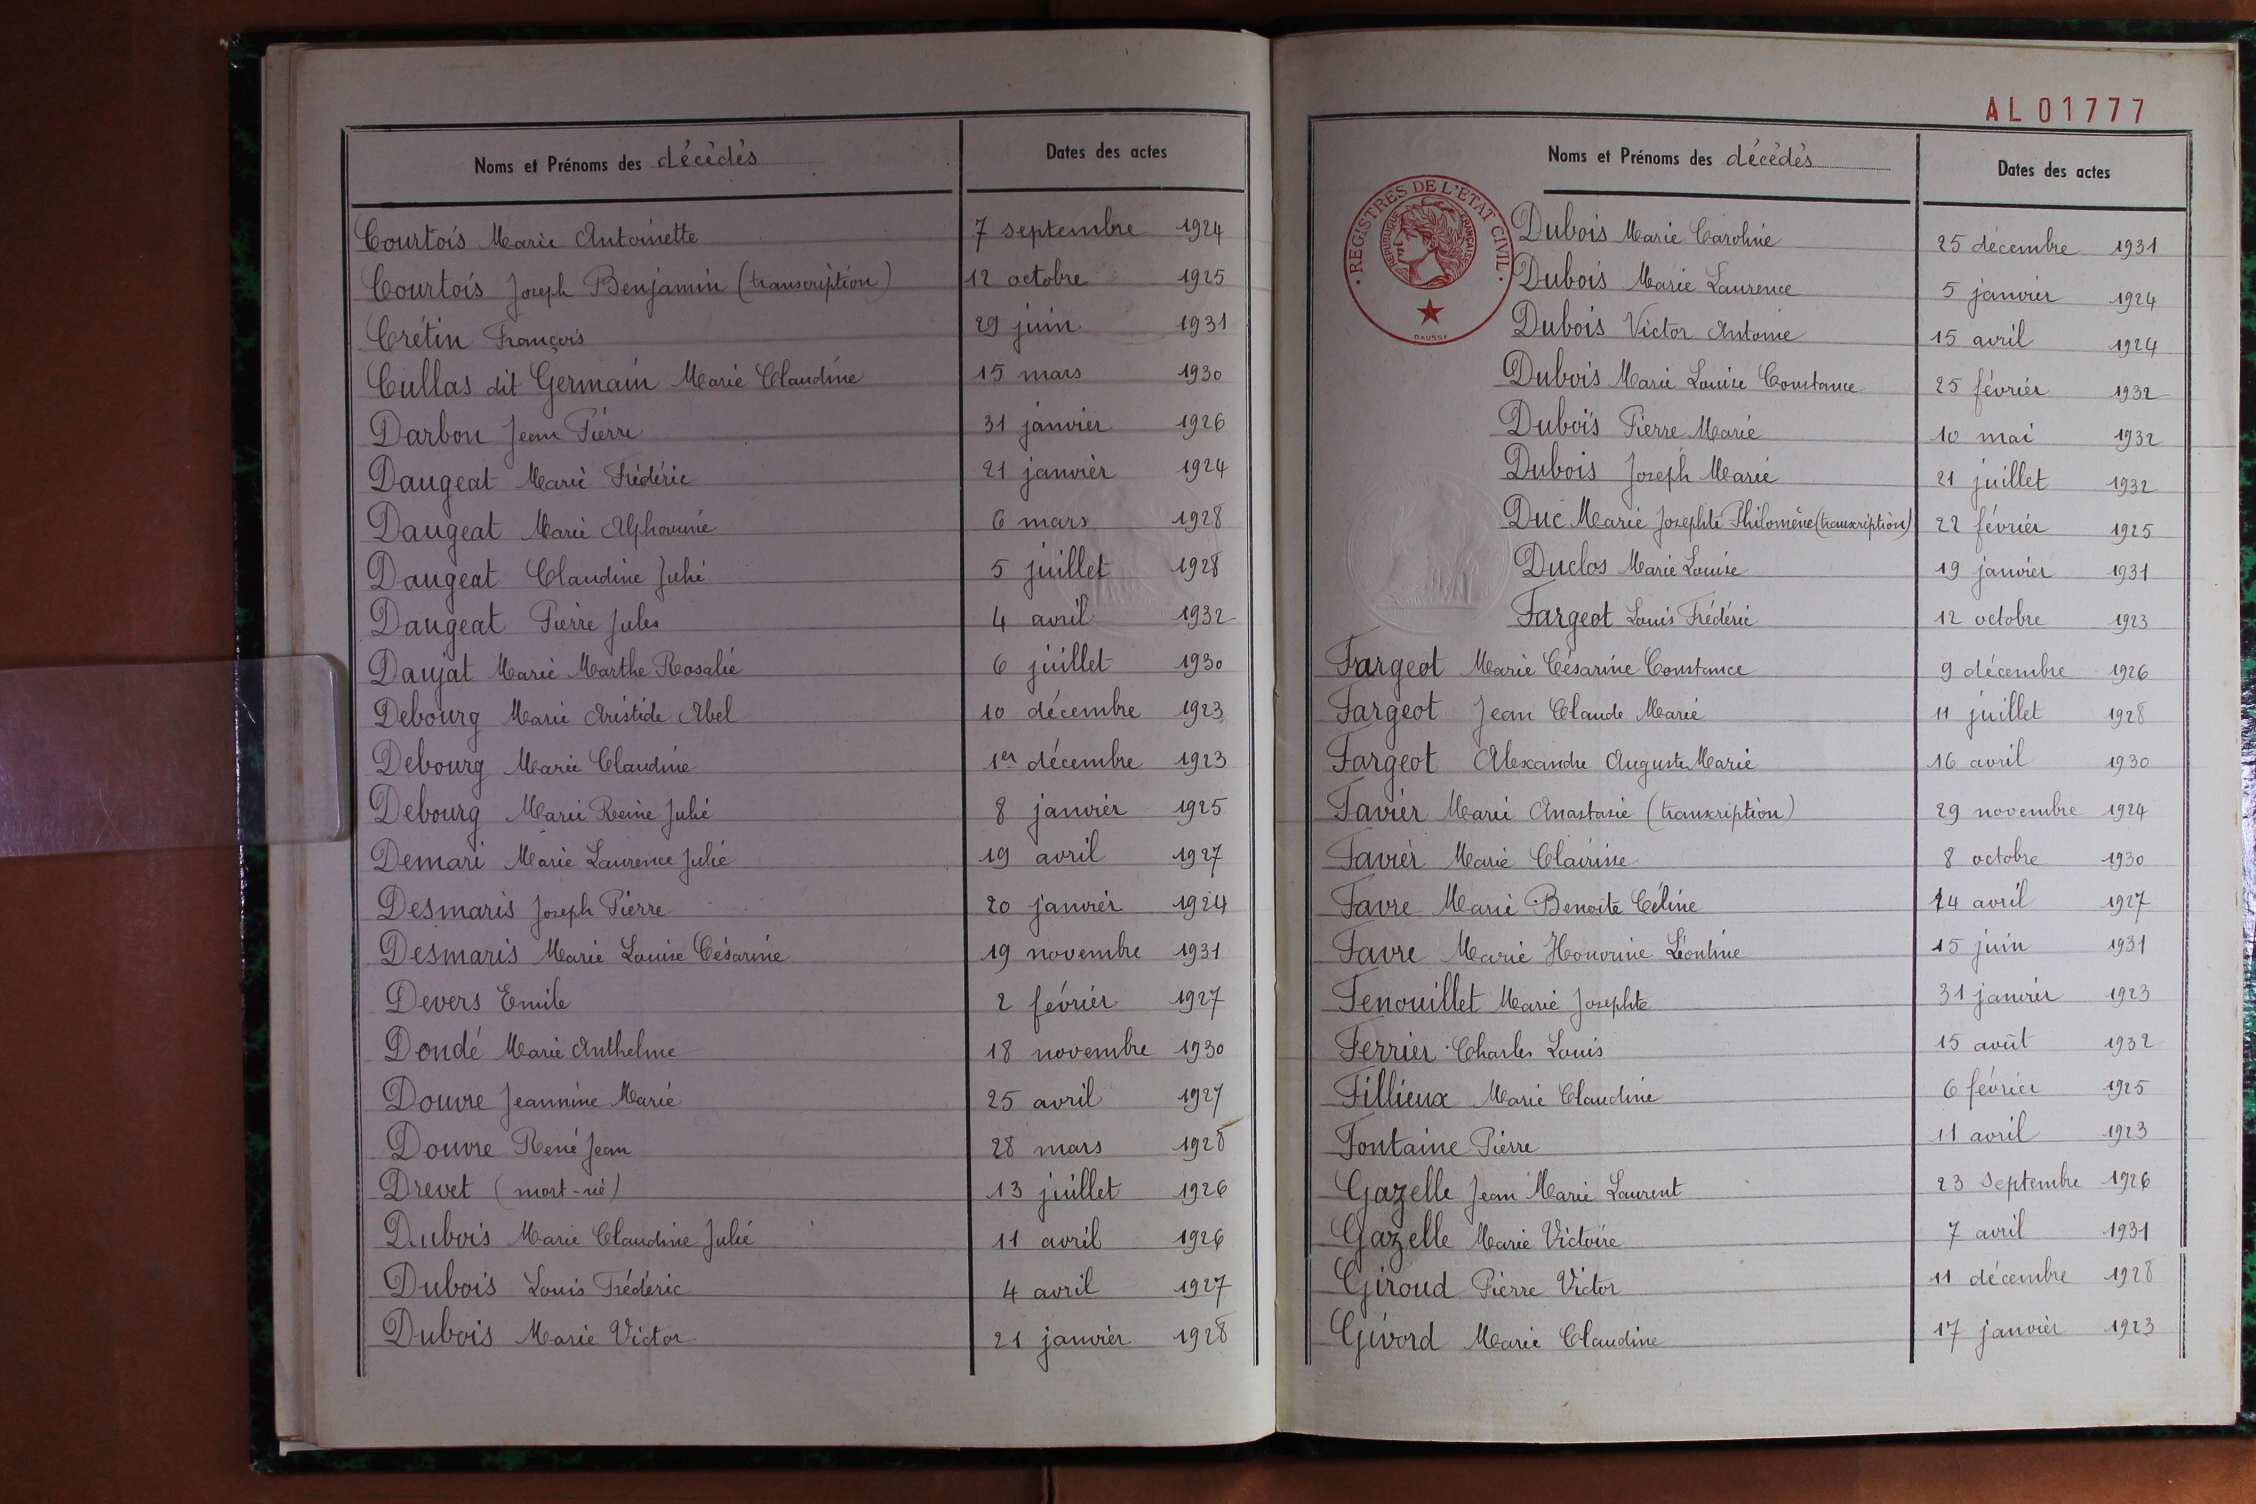 Noms et Prénoms des décédés Dates des actes
Courtois Marie Antoinette 7 septembre 1924
Courtois Joseph Benjamin (transcription) 12 octobre 1925
Crétin François 29 juin 1931
Cullas dit Germain Marie Claudine 15 mars 1930
Darbon Jean Pierre 31 janvier 1926
Daugeat Marie Frédéric 21 janvier 1924
Daugeat Marie Alphonsine 6 mars 1928
Daugeat Claudine Julie 5 juillet 1928
Daugeat Pierre Jules 4 avril 1932
Daujat Marie Marthe Rosalie 6 juillet 1930
Debourg Marie Aristide Abel 10 décembre 1923
Debourg Marie Claudine 1er décembre 1923
Debourg Marie Reine Julie 8 janvier 1925
Demari Marie Laurence Julie 19 avril 1927
Desmaris Joseph Pierre 20 janvier 1924
Desmaris Marie Louise Césarine 19 novembre 1931
Devers Emile 2 février 1927
Dondé Marie Anthelme 18 novembre 1930
Douvre Jeannine Marie 25 avril 1927
Douvre René Jean 28 mars 1928
Drevet (mort-né) 13 juillet 1926
Dubois Marie Claudine Julie 11 avril 1926
Dubois Louis Frédéric 4 avril 1927
Dubois Marie Victor 21 janvier 1928
AL01777
Noms et Prénoms des décédés Dates des actes
REGISTRES DE L'ETAT CIVIL
REPUBLIQUE FRANÇAISE
DAUSSE
Dubois Marie Caroline 25 décembre 1931
Dubois Marie Laurence 5 janvier 1924
Dubois Victor Antoine 15 avril 1924
Dubois Marie Louise Constance 25 février 1932
Dubois Pierre Marie 10 mai 1932
Dubois Joseph Marie 21 juillet 1932
Duc Marie Josephte Philomène (transcription) 22 février 1925
Duclos Marie Louise 19 janvier 1931
Fargeot Louis Frédéric 12 octobre 1923
Fargeot Marie Césarine Constance 9 décembre 1926
Fargeot Jean Claude Marie 11 juillet 1928
Fargeot Alexandre Auguste Marie 16 avril 1930
Favier Marie Anastasie (transcription) 29 novembre 1924
Favier Marie Clairisse 8 octobre 1930
Favre Marie Benoite Céline 24 avril 1927
Favre Marie Honorine Léontine 15 juin 1931
Fenouillet Marie Josephte 31 janvier 1923
Ferrier Charles Louis 15 août 1932
Fillieux Marie Claudine 6 février 1925
Fontaine Pierre 11 avril 1923
Gazelle Jean Marie Laurent 23 septembre 1926
Gazelle Marie Victoire 7 avril 1931
Giroud Pierre Victor 11 décembre 1928
Givord Marie Claudine 17 janvier 1923